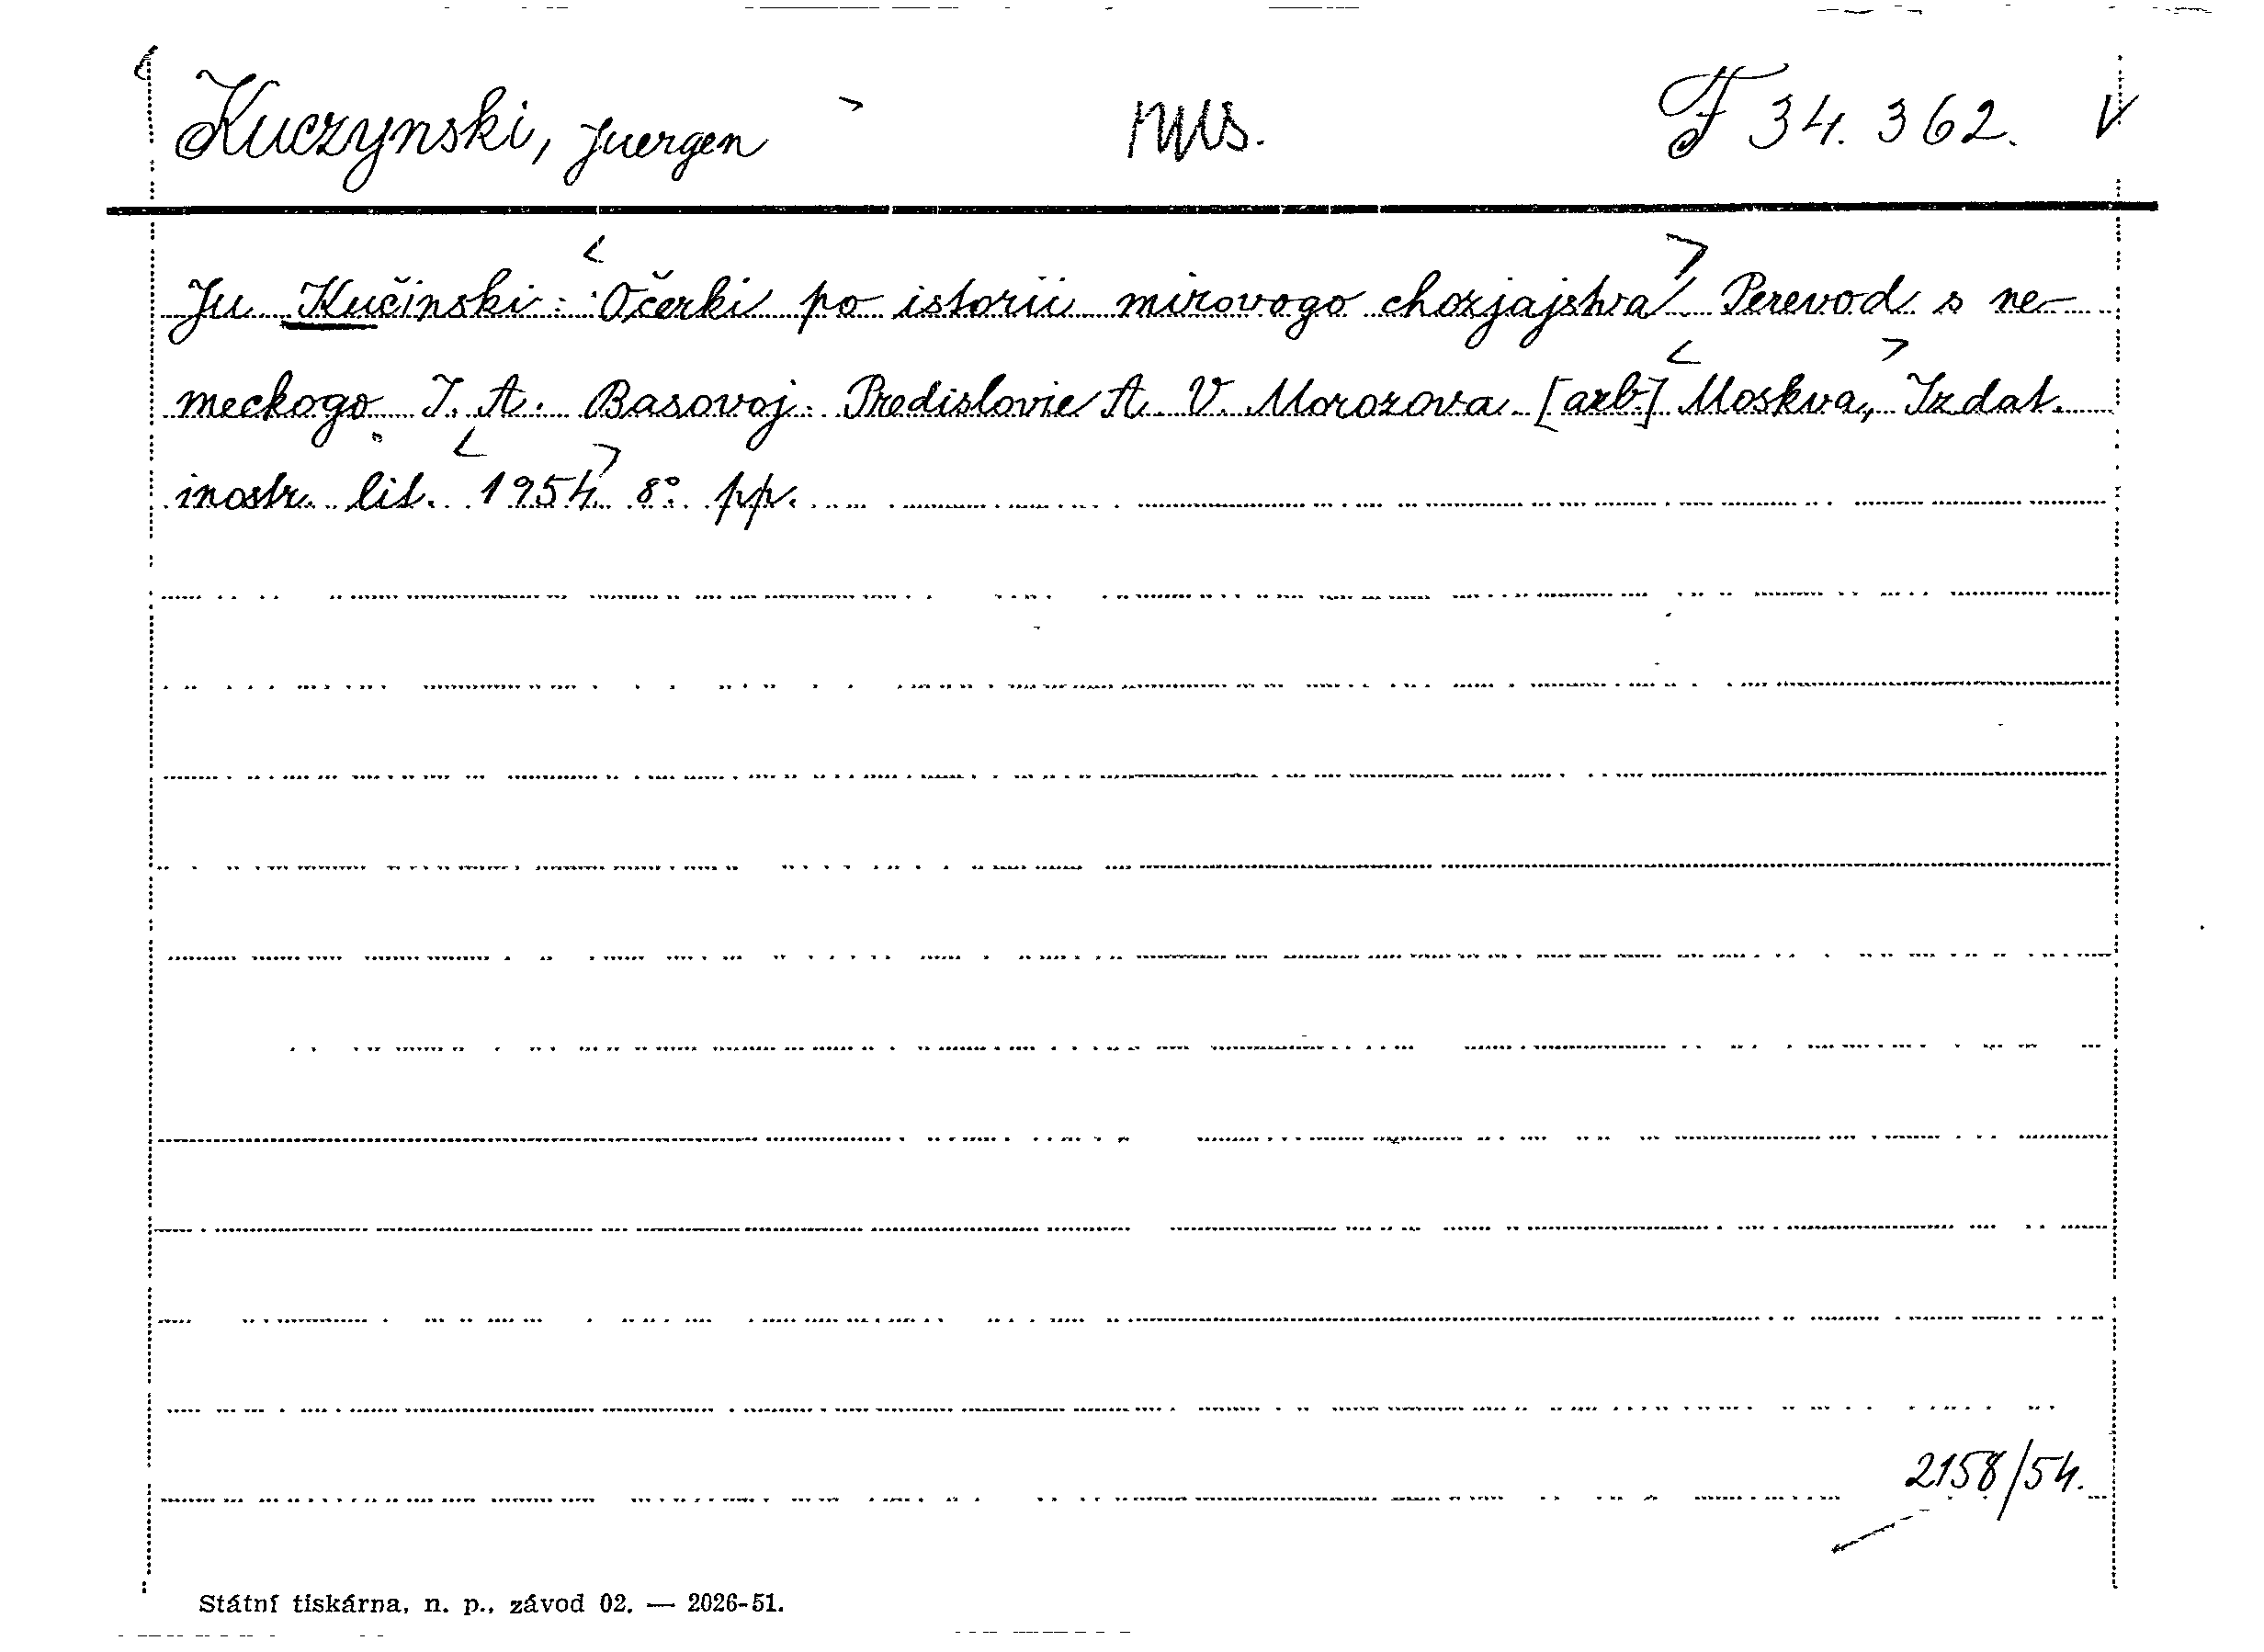 Kuczynski, Juergen rus. F 34.362. V
Ju Kučinski: Očerki po istorii mirovogo chozjajstva. Perevod s ne-
meckogo I. A. Basovoj. Predislovie A. V. Morozova. [azb.] Moskva, Izdat.
inostr. lit. 1954 8° pp.
2158/54.
Státní tiskárna, n. p., závod 02. — 2026-51.